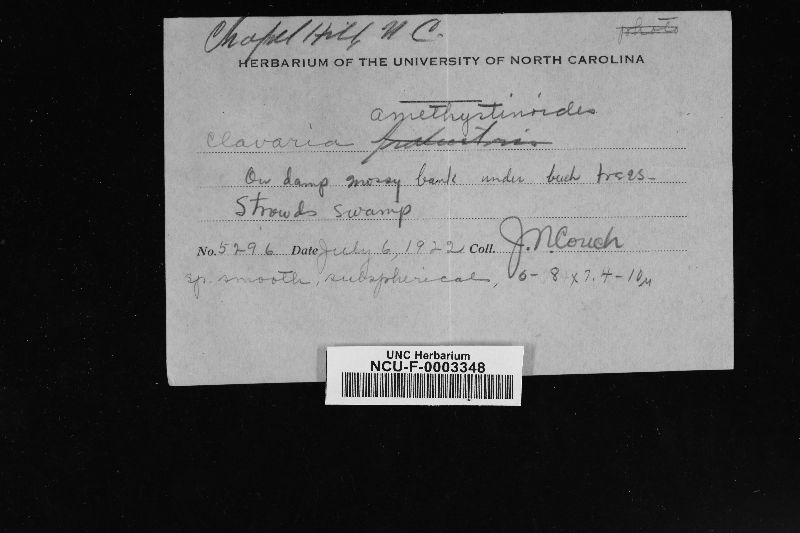 Chapel Hill N C.
photo
HERBARIUM OF THE UNIVERSITY OF NORTH CAROLINA
amethystinoides
Clavaria
On damp mossy bank under beech trees-
Strowds swamp
No. 5296 Date July 6, 1922 Coll. J.N.Couch
sp. smooth, subspherical, 6- 8 x 7.4-10μ
UNC Herbarium
NCU-F-0003348